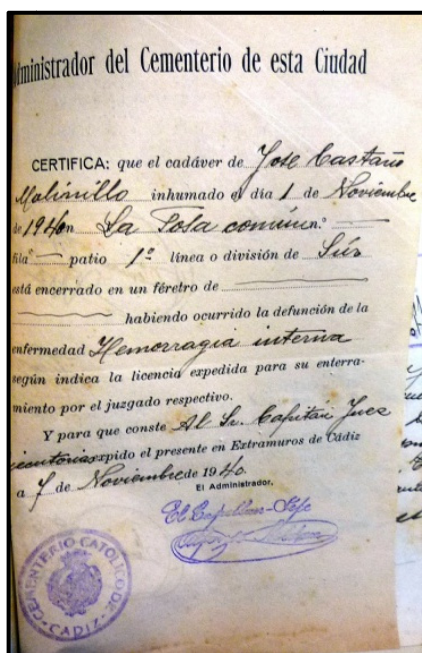 dministrador del Cementerio de esta Ciudad
CERTIFICA: que el cadáver de Jose Castaño
Molinillo inhumado el día 1 de Noviembre
de 1940 en La Fosa común n.º
fila " patio 1º línea o división de Súr
está encerrado en un féretro de
habiendo ocurrido la defunción de la
enfermedad Hemorragia interna
según indica la licencia expedida para su enterra-
miento por el juzgado respectivo.
Y para que conste Al Sr. Capitan Juez
expido el presente en Extramuros de Cádiz
a 7 de Noviembre de 1940.
El Administrador,
El Capellan-Jefe
CEMENTERIO CATOLICO DE CADIZ